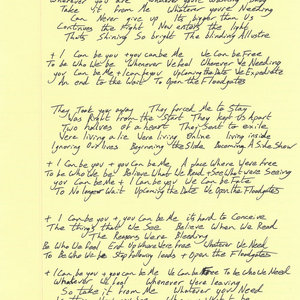 Wherever you are Whatever you're Wanting
Take it from Me Whatever you're Needing
Can Never give up Its bigger than Us
Continues the Fight Now enters the
Thats Shining So bright The blinding
+ I Can be you + you can be Me We Can be Free
To be Who we be Whenever We feel Wherever We Needing
you Can be Me + I can be you Upcoming the Date We Expediate
An end to the Wait To Open the Floodgates
They Took you away They forced Me to Stay
Was Right from the Start They kept Us Apart
Two halves of a heart They Sent to exile
Were living a lie Were living Online living inside
Ignoring Our lives Beginning the Slide Becoming A Side Show
+ I Can be you + you Can be Me A place Where Were free
To be Who We be Believe What We Read + See What were Seeing
you Can be Me + I Can be you We Can be Fate
To No longer Wait Upcoming the Date We Open the Floodgates
+ I Can be you + you Can be Me its hard to Conceive
The things that We See Believe When We Read
The Reasons Were Bleeding
Be Who We feel End Up Where Were Free Whatever We Need
To Be Who We be Stop following leads + Open The Floodgates
+ I Can be you + you Can be Me We Can be Free To be Who We Need
Whatever We feel Whenever Were leaving
So take it from Me Whatever you Need